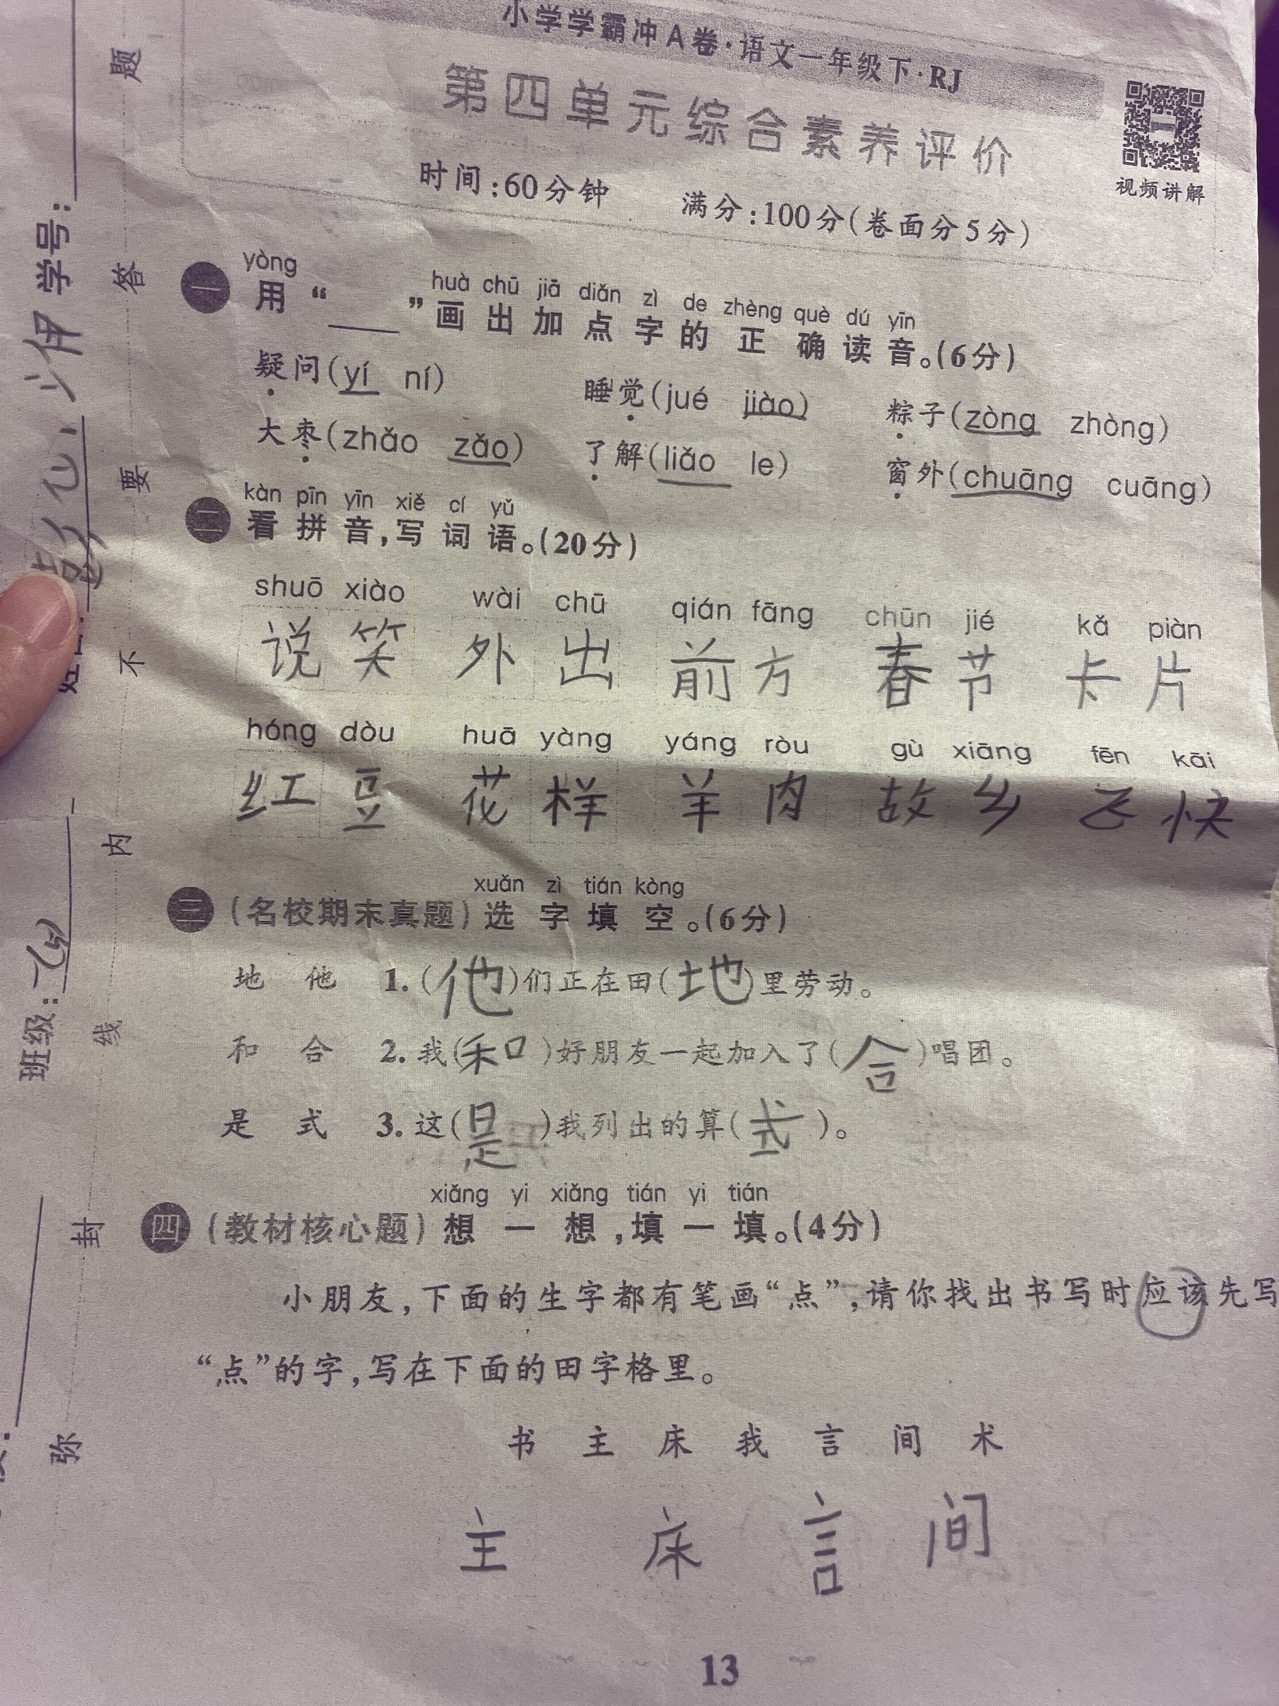 小学学霸冲A卷·语文一年级下·RJ
第四单元综合素养评价
时间:60分钟 满分:100分(卷面分5分)
视频讲解
yòng huà chū jiā diǎn zì de zhèng què dú yīn
一 用“____”画出加点字的正确读音。(6分)
疑问(yí ní) 睡觉(jué jiào) 粽子(zòng zhòng)
大枣(zhǎo zǎo) 了解(liǎo le) 窗外(chuāng cuāng)
kàn pīn yīn xiě cí yǔ
二 看拼音,写词语。(20分)
shuō xiào wài chū qián fāng chūn jié kǎ piàn
说笑 外出 前方 春节 卡片
hóng dòu huā yàng yáng ròu gù xiāng fēn kāi
红豆 花样 羊肉 故乡 飞快
xuǎn zì tián kòng
三 (名校期末真题)选字填空。(6分)
地 他 1.(他)们正在田(地)里劳动。
和 合 2.我(和)好朋友一起加入了(合)唱团。
是 式 3.这(是)我列出的算(式)。
xiǎng yi xiǎng tián yi tián
四 (教材核心题)想一想,填一填。(4分)
小朋友,下面的生字都有笔画“点”,请你找出书写时应该先写
“点”的字,写在下面的田字格里。
书 主 床 我 言 间 术
主 床 言 间
13
学号:
班级:
题
答
要
不
内
线
封
弥